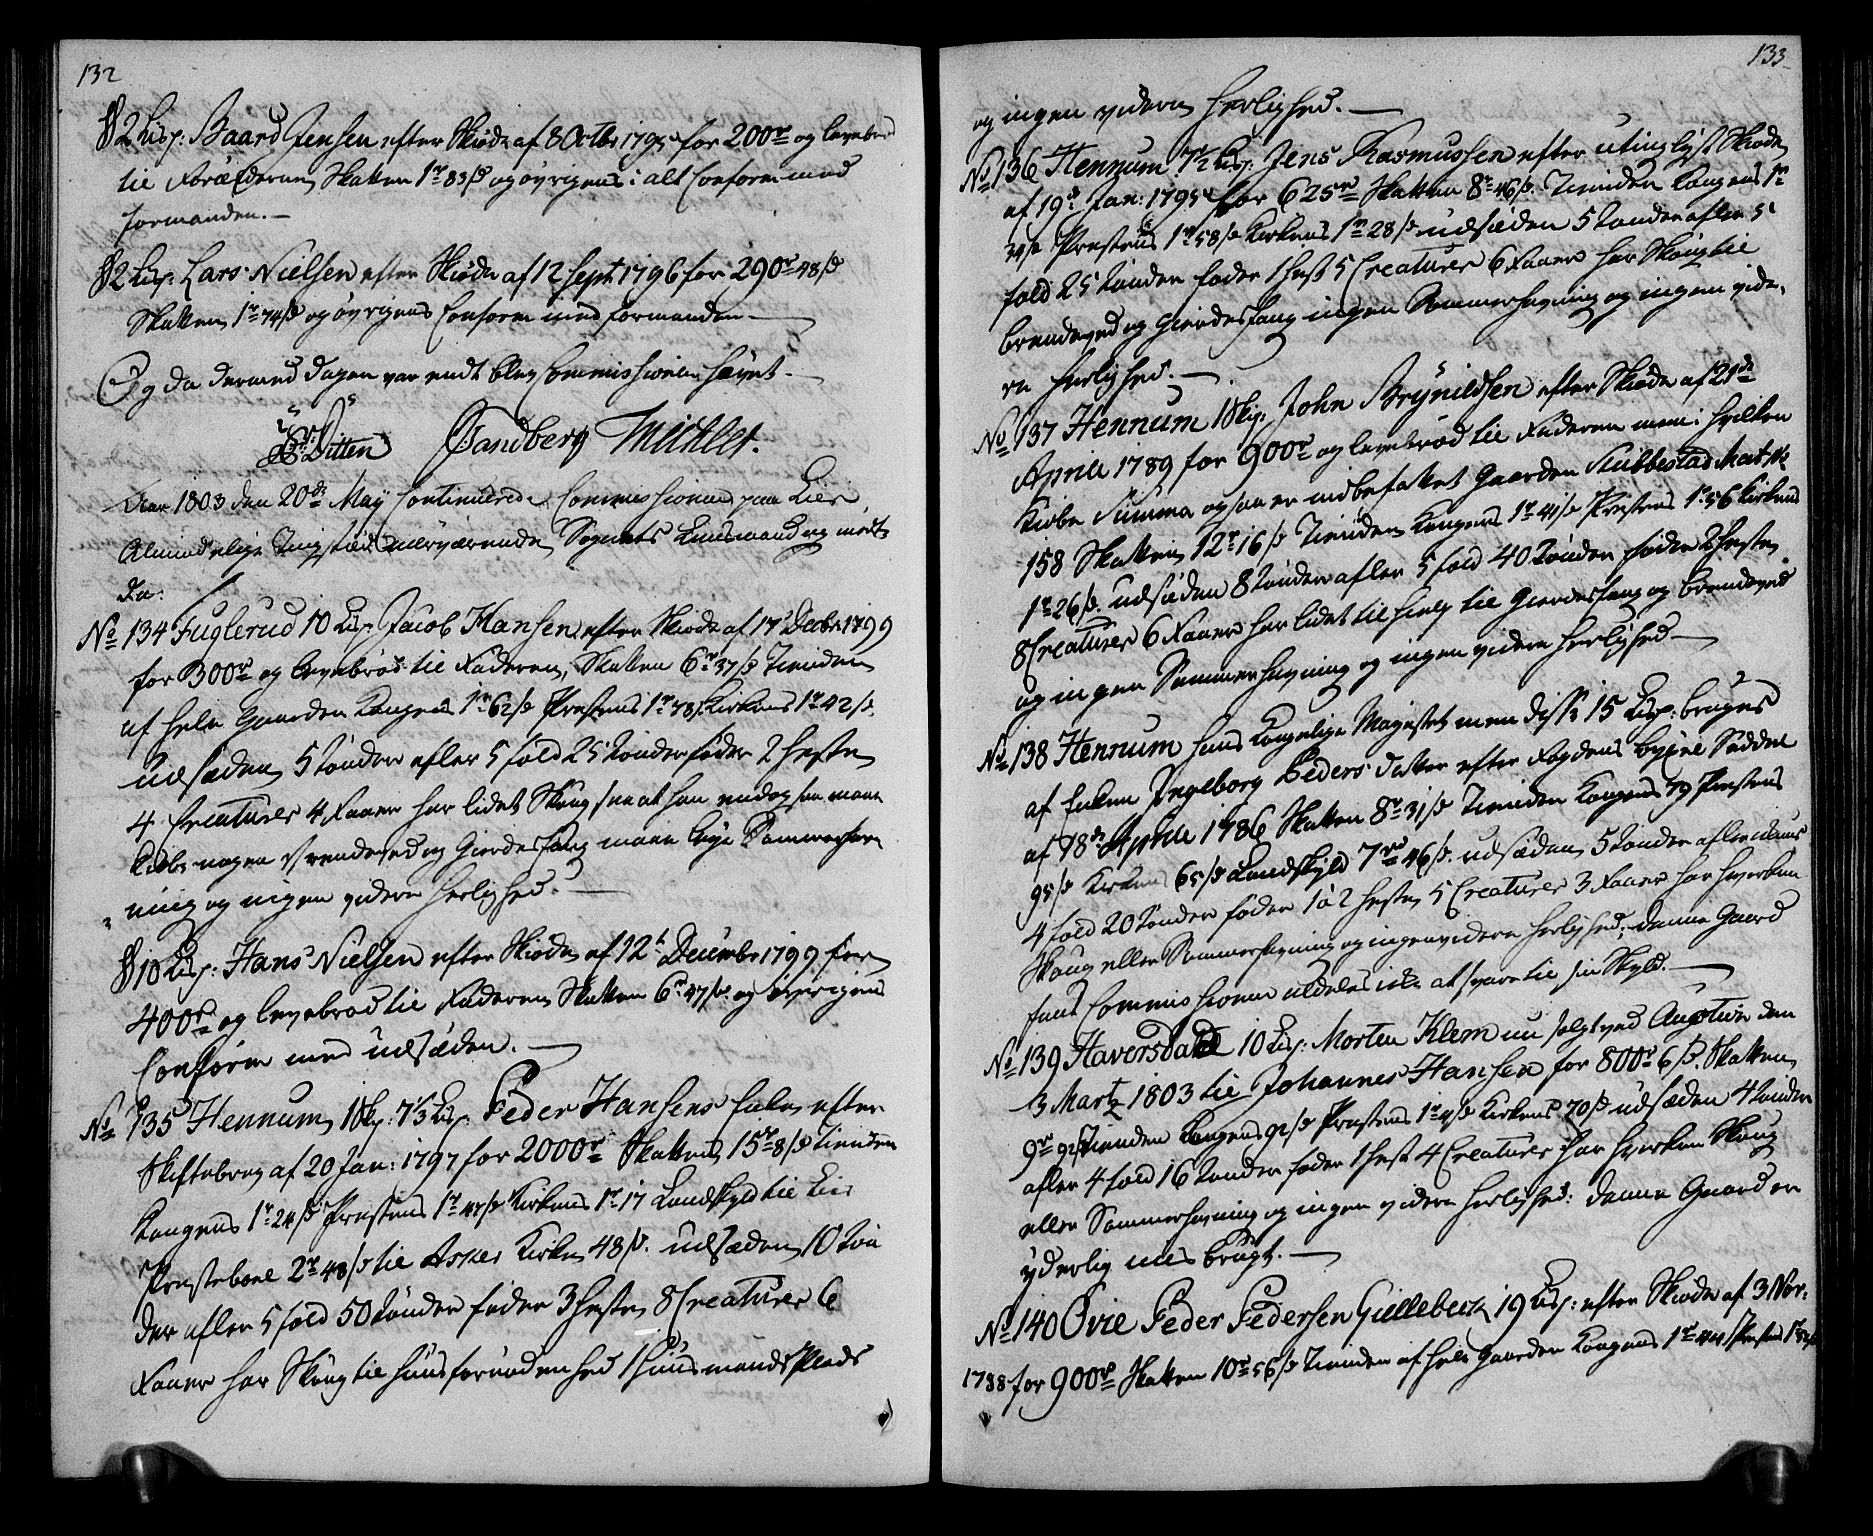 132
§ 2 Lisp: Baard Jensen efter Skiøde af 8 Octbr 1795 for 200r og levebrød
til Forældrene Skatten 1r 83 s og øvrigens i alt Conform med
formanden.
§ 2 Lisp: Lars Nielsen efter Skiøde af 12 Septr 1796 for 290r 48 s
Skatten 1r 74 s og øvrigens Conform med formanden
Og da dermed dagen var endt blev Commissionen hævet.
Ditten Sandberg Michlet.
Aar 1803 den 20de May Continuerede Commissionen paa Lier
Almindelige Tingsted nærværende Sognets Lensmand og mødte
da:
No 134 Fuglerud 10 Lisp Jacob Hansen efter Skiøde af 17 Decbr 1799
for 300r og levebrød til Faderen, Skatten 6r 37 s Tienden
af hele Gaarden Kongens 1r 62 s Præstens 1r 78 s Kirkens 1r 42 s
Udsæden 5 tønder afler 5 fold 25 tønder føder 2 heste
4 Creaturer 4 Faaer har lidet Skoug saa at han endog saa maae
kiøbe nogen Brendeved og Gierdesfang maae leye Sommerhav
ning og ingen videre herlighed.
§ 10 Lisp: Hans Nielsen efter Skiøde af 12t Decembr 1799 for
400r og levebrød til Faderen Skatten 6r 37 s og øvrigens
Conform med udsæden.
No 135 Hennum 1 Skp: 7 1/3 Lisp Peder Hansens Enke efter
Skiftebrev af 20 Jan: 1797 for 2000r Skatten 15r 8 s Tienden
Kongens 1r 24 s Præstens 1r 47 s Kirkens 1r 17 Landskyld til Lier
Præsteboel 2r 48 s til Asker Kirke 48 s. udsæden 10 tøn
der afler 5 fold 50 tønder føder 3 heste 8 Creaturer 6
Faaer har Skoug til huusfornødenhed 1 huusmands Plads
133
og ingen videre herlighed.
No 136 Hennum 7 1/2 Lisp: Jens Rasmussen efter utinglyst Skiøde
af 19de Jan: 1795 for 625r Skatten 8r 46 s. Tienden Kongens 1r
34 s Præstens 1r 58 s Kirkens 1r 28 s udsæden 5 tønder afler 5
fold 25 tønder føder 1 hest 5 Creaturer 6 Faaer har Skoug til
brendeved og Gierdesfang ingen Sommerhavning og ingen vide-
re herlighed.
No 137 Hennum 1 Skp: John Brynildsen efter Skiøde af 21de
Aprill 1789 for 900r og levebrød til Faderen men i hvilken
Kiøbe Summa ogsaa er indbefattet Gaarden Stubbestad Mat No
158 Skatten 12r 16 s Tienden Kongens 1r 41 s Præstens 1r 56 Kirkens
1r 26 s. udsæden 8 tønder afler 5 fold 40 tønder føder 2 heste
8 Creaturer 6 Faaer har lidet til hielp til Gierdesfang og brendeved
og ingen Sommerhavning og ingen videre herlighed
No 138 Hennum hans Kongelige Majestet men disse 15 Lisp: bruges
af Enken Ingelborg Peders datter efter Fogdens byxel Seddel
af 18de Aprill 1786 Skatten 8r 31 s Tienden Kongens 79 Præstens
95 s Kirken 65 s Landskyld 7r 46 s. udsæden 5 tønder afler
4 fold 20 tønder føder 1 à 2 heste 5 Creaturer 3 Faaer har hverken
Skoug eller Sommerhavning og ingen videre herlighed; denne Gaard
fant Commissionen aldeles ikke at svare til sin Skyld.
No 139 Haversdahl 10 Lisp: Morten Klem nu solgt ved Auction den
3 Martz 1803 til Johannes Hansen for 800r 6 s. Skatten
9r 92 s Tienden Kongens 92 s Præstens 1r 4 s Kirkens 70 s udsæden 4 tønder
afler 4 fold 16 tønder føder 1 hest 4 Creaturer har hverken Skoug
eller Sommerhavning og ingen videre herlighed: denne Gaard er
yderlig brugt.
No 140 Ovie Peder Pedersen Gullebeck 19 Lisp: efter Skiøde af 3 Nov:
1788 for 900r Skatten 10r 56 s Tienden af hele Gaarden Kongens 1r 44 Præstens